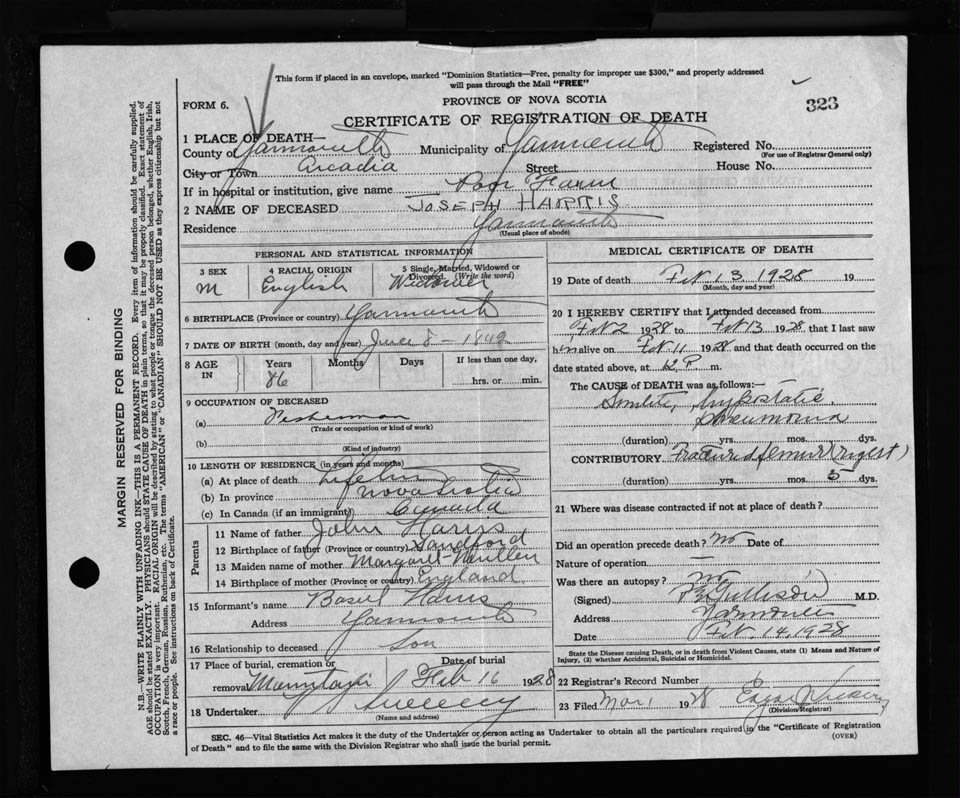 This form if placed in an envelope, marked "Dominion Statistics—Free, penalty for improper use $300," and properly addressed
will pass through the Mail "FREE"
FORM 6.
PROVINCE OF NOVA SCOTIA
323
CERTIFICATE OF REGISTRATION OF DEATH
1 PLACE OF DEATH—
County of Yarmouth Municipality of Yarmouth Registered No.
(For use of Registrar General only)
City or Town Arcadia Street House No.
If in hospital or institution, give name Poor Farm
2 NAME OF DECEASED JOSEPH HARRIS
Residence Yarmouth
(Usual place of abode)
PERSONAL AND STATISTICAL INFORMATION
3 SEX M
4 RACIAL ORIGIN English
5 Single, Married, Widowed or Divorced. (Write the word) Widower
6 BIRTHPLACE (Province or country) Yarmouth
7 DATE OF BIRTH (month, day and year) June 8 - 1842
8 AGE IN Years 86 Months Days If less than one day, hrs. or min.
9 OCCUPATION OF DECEASED
(a) Fisherman
(Trade or occupation or kind of work)
(b)
(Kind of industry)
10 LENGTH OF RESIDENCE (in years and months)
(a) At place of death Lifetime
(b) In province Nova Scotia
(c) In Canada (if an immigrant) Canada
Parents
11 Name of father John Harris
12 Birthplace of father (Province or country) Sandford
13 Maiden name of mother Margaret
14 Birthplace of mother (Province or country) England
15 Informant's name Basil Harris
Address Yarmouth
16 Relationship to deceased Son
17 Place of burial, cremation or removal Mountain Date of burial Feb 16 1928
18 Undertaker Sweeny
(Name and address)
MEDICAL CERTIFICATE OF DEATH
19 Date of death Feb. 13 1928 19
(Month, day and year)
20 I HEREBY CERTIFY that I attended deceased from
Feb 2 1928 to Feb 13 1928 that I last saw
him alive on Feb. 11 1928 and that death occurred on the
date stated above, at 12 P. m.
The CAUSE OF DEATH was as follows:
Senility, Hypostatic
Pneumonia
(duration) yrs. mos. dys.
CONTRIBUTORY Fractured femur (right)
(duration) yrs. mos. 5 dys.
21 Where was disease contracted if not at place of death?
Did an operation precede death? No Date of
Nature of operation —
Was there an autopsy? No
(Signed) M.D.
Address Yarmouth
Date Feb. 14, 1928
State the Disease causing Death, or in death from Violent Causes, state (1) Means and Nature of
Injury, (2) whether Accidental, Suicidal or Homicidal.
22 Registrar's Record Number
23 Filed Mar 1 1928
(Division Registrar)
SEC. 46—Vital Statistics Act makes it the duty of the Undertaker or person acting as Undertaker to obtain all the particulars required in the "Certificate of Registration
of Death" and to file the same with the Division Registrar who shall issue the burial permit. (OVER)
MARGIN RESERVED FOR BINDING
N.B.—WRITE PLAINLY WITH UNFADING INK—THIS IS A PERMANENT RECORD. Every item of information should be carefully supplied.
AGE should be stated EXACTLY. PHYSICIANS should STATE CAUSE OF DEATH in plain terms, so that it may be properly classified. Exact statement of
OCCUPATION is very important. RACIAL ORIGIN will be described by stating to what people or tongue the deceased person belonged, whether English, Irish,
Scotch, French, German, Russian, Ruthenian, etc. The terms "AMERICAN" or "CANADIAN" SHOULD NOT BE USED as they express citizenship but not
a race or people. See instructions on back of Certificate.